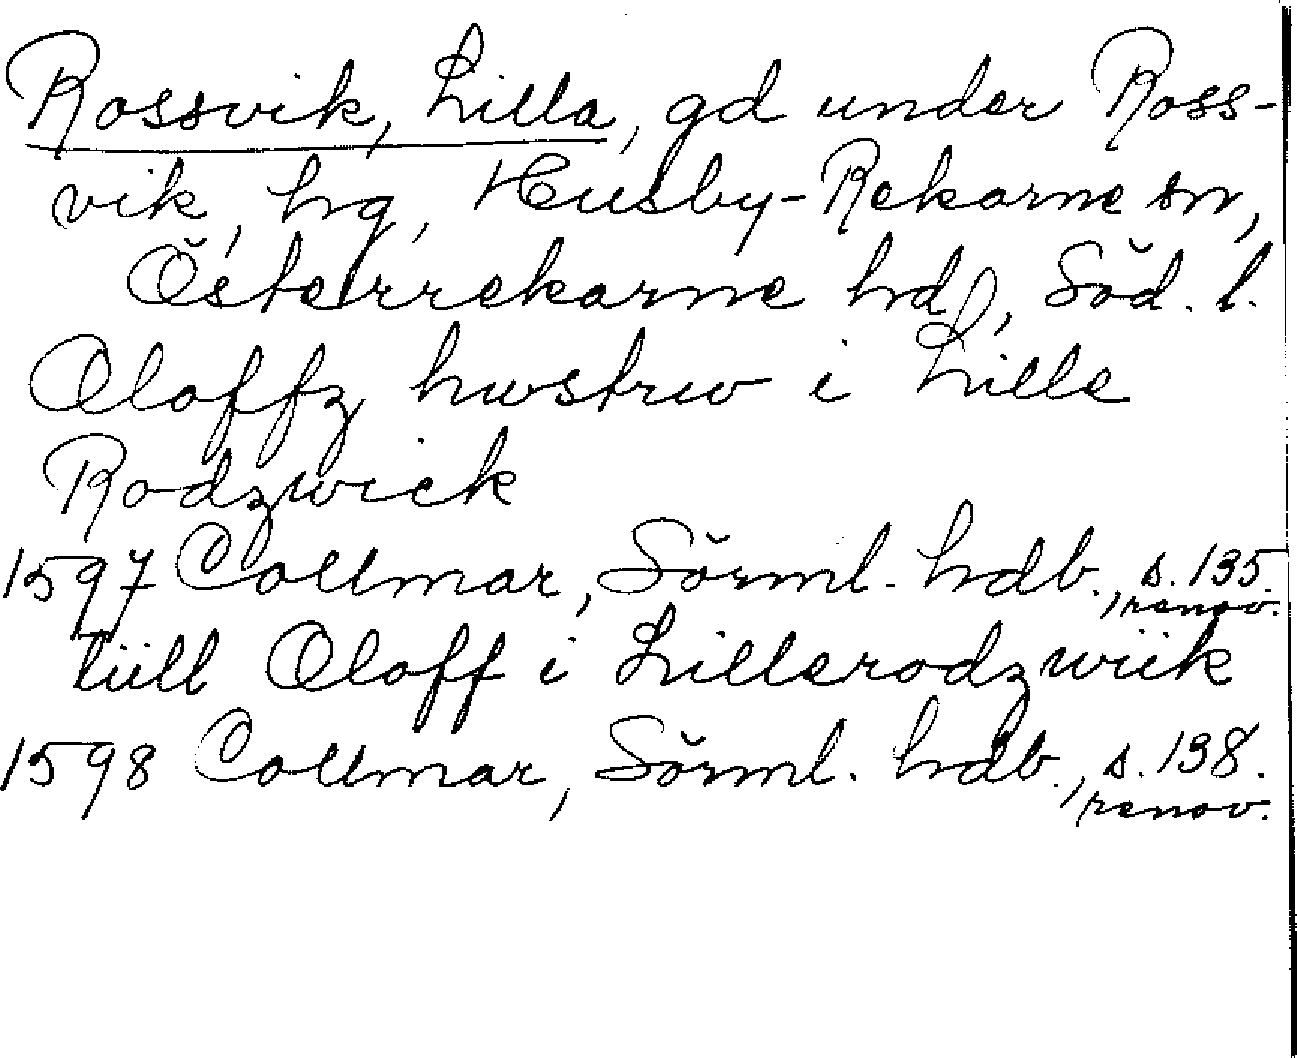 Rossvik, Lilla, gd under Ross-
vik, hg, Husby-Rekarne sn,
Österrekarne hd, Söd. l.
Oloffz hwstrw i Lille
Rodzwick
1597 Collmar, Sörml. hdb., s. 135.
renov.
tiill Oloff i Lillerodzwiik
1598 Collmar, Sörml. hdb., s. 138.
renov.